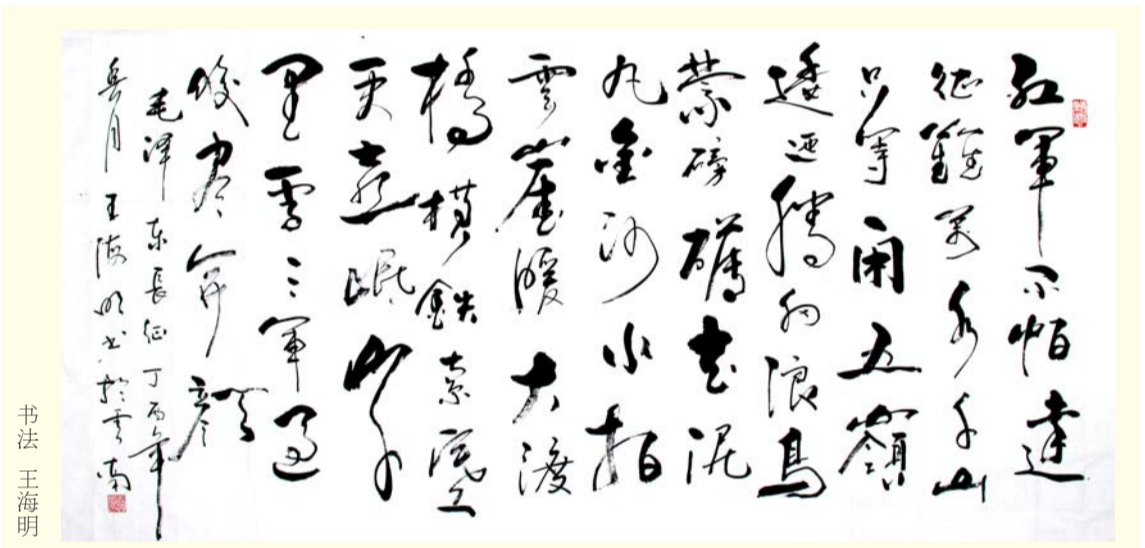 紅軍不怕遠
征難萬水千山
只等闲五嶺
逶迤腾細浪烏
蒙磅礴走泥
丸金沙水拍
雲崖暖大渡
橋横鐵索寒
更喜岷山千
里雪三軍過
後盡開顔
毛澤东長征丁酉年
月王海明书於雲南
书法 王海明